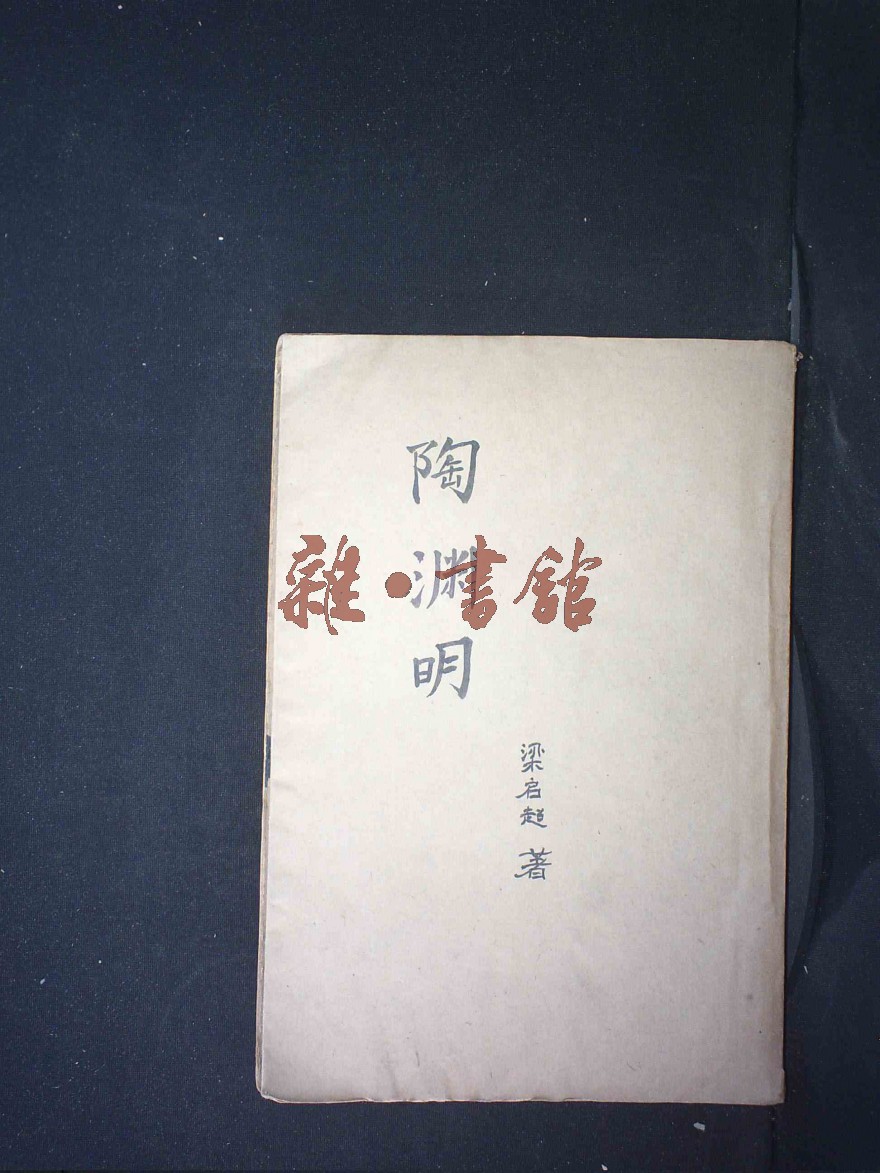 陶渊明
梁启超 著
雜·書館